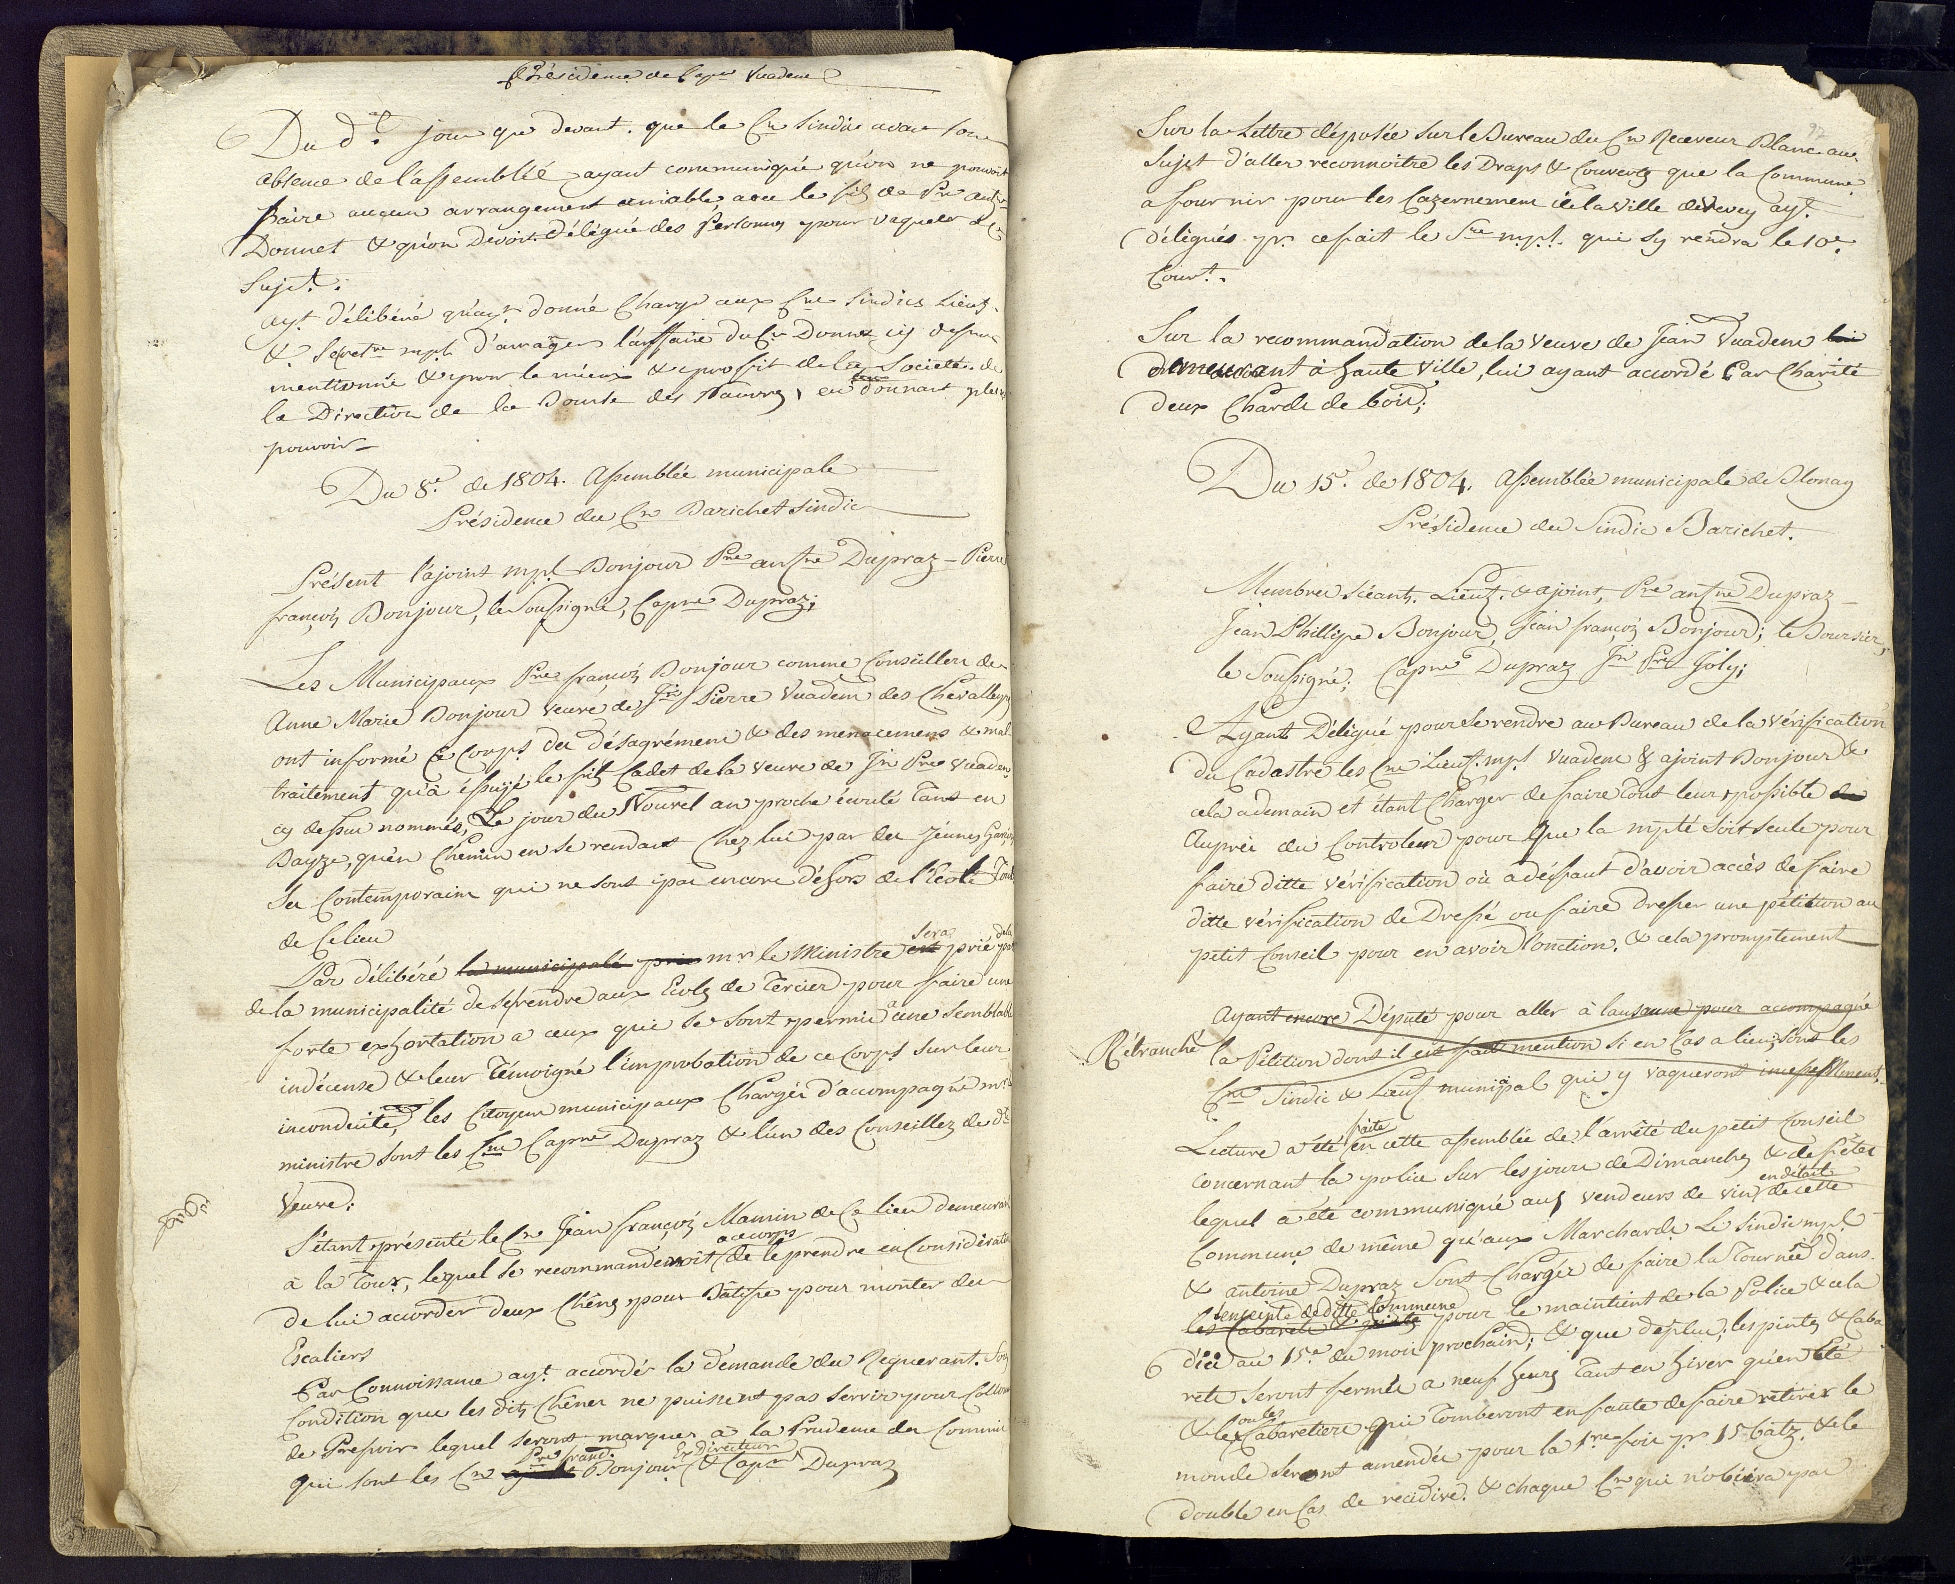 Présidence de Capne Vuadene
Du d.e jour que devant. que le Cn Sindic avant son
absence de l'assemblée ayant communiqué qu'on ne pouvoit
faire aucun arrangement amiable avec le fils de Pre
Donnet & qu'on Devoit délégué des Personnes pour vaquer à ce
Sujet.
ayt. délibéré qu'ayt. donné Charge aux Cns Sindics Lieut.
& Secretre mpl. d'arranger l'affaire du Cn Donnet cy dessus
mentionnée & pour le mieux & profit de la Societté de
la Direction de la Bourse des Pauvres, en leur donnant plein
pouvoir
Du 8e. de 1804. Assemblée municipale
Présidence du Cn Barichet Sindic
Présent l'ajoint mpl Bonjour Pre antne Dupraz - Pierre
françois Bonjour, le Soussigné, Capne Dupraz;
Les Municipaux Pre françois Bonjour comme Conseiller de
Anne Marie Bonjour veuve de Jn Pierre Vuadene des Chevalleyres
ont informé ce Corps du désagrément & des menacemens & mal
traitement qu'à éssuyé le fils Cadet de la veuve de Jn Pre Vuadene
cy dessus nommés, Le jour du Nouvel an proche écoulé tant en
Bayze, qu'en Chemin en se rendant Chez lui par des Jeunes Garçons
Ses Contemporains qui ne sont pas encore déhors de l'Ecole Tous
de Ce lieu
Par délibéré la municipalé prie mr le Ministre est sera prié de la part
de la municipalité de se rendre aux Ecoles de Tercier pour faire une
forte exhortation a ceux qui se sont permis à une semblable
indécense & leur Témoigné l'improbation de ce Corps sur leur
inconduite, les Citoyens municipaux Chargés d'accompagné mr le
ministre sont les Cns Capne Dupraz & l'un des Conseillers de dte
Veuve;
S'étant présenté le Cn Jean françois Mamin de Ce lieu demeurant
à la Tour, lequel se recommanderoit a ce corps de le prendre en Considération
de lui accorder deux Chênes pour Bâtisse pour monter des
Escaliers
Par Connoissance ayt. accordés la demande du Requerant. Sous
Condition que les dits Chênes ne puissent pas servir pour Collonne
de Pressoir lequel seront marqués à la Prudence des Commis
qui sont les Cns ajoint Pre frans. Bonjour Ex Directeur & Capne Dupraz
92
Sur la Lettre déposée sur le Bureau du Cn Receveur Blanc au
Sujet d'aller reconnoitre les Draps & Couvertes que la Commune
a fournir pour les Cazernement de la Ville de Vevey ayt.
délegués pr. ce fait le Sre mpl. qui sy rendra le 10e.
Court.
Sur la recommandation de la Veuve de Jean Vuadene lui
demeurant à haute Ville, lui ayant accordé Par Charité
deux Chards de bois;
Du 15e. de 1804. Assemblée municipale de Blonay
Présidence du Sindic Barichet.
Membres Séants. Lieut. & ajoint, Pre antne Dupraz
Jean Phillipe Bonjour, Jean françois Bonjour; le Boursier,
le Soussigné; Capne Dupraz Jn Pre Joly;
Ayant Délégué pour se rendre au Bureau de la vérification
du Cadastre les Cns Lieut. mpl Vuadene & ajoint Bonjour &
cela a demain et étant Charger de faire Tout leur possible de
Auprès du Controleur pour Que la mpté soit seule pour
faire ditte vérification où a défaut d'avoir accès de faire
ditte vérification de Dressé ou faire Dresser une pétition au
petit Conseil pour en avoir l'onction. & cela promptement
Ayant encore Député pour aller à lausanne pour accompagné
Rétranché
la Pétition dont il est fait mention si en Cas a lieu, sont les
Cns Sindic & Lieut municipal qui y vaqueront incessamment.
Lecture a été faite en cette assemblée de l'arrêté du petit Conseil
concernant la police sur les jours de Dimanches & de fêtes
lequel a été communiqué aux vendeurs de vin en détail de cette
Commune de même qu'aux Marchards. Le Sindic mpl.
& antoine Dupraz Sont Chargés de faire la Tournée dans
les Cabarets & pintes l'enceinte de ditte Commune pour le maintient de la Police & cela
d'ici au 15e. du mois prochain; & que de plus; les pintes & Caba
rets seront fermés a neuf heures Tant en hiver qu'en Eté
& les Cabaretiers qui Tomberont en faute de faire rétirer le
monde seront amendés pour la 1re fois pr. 15 batz. & le
double en Cas de recidive. & chaque Cn qui n'obéira pas